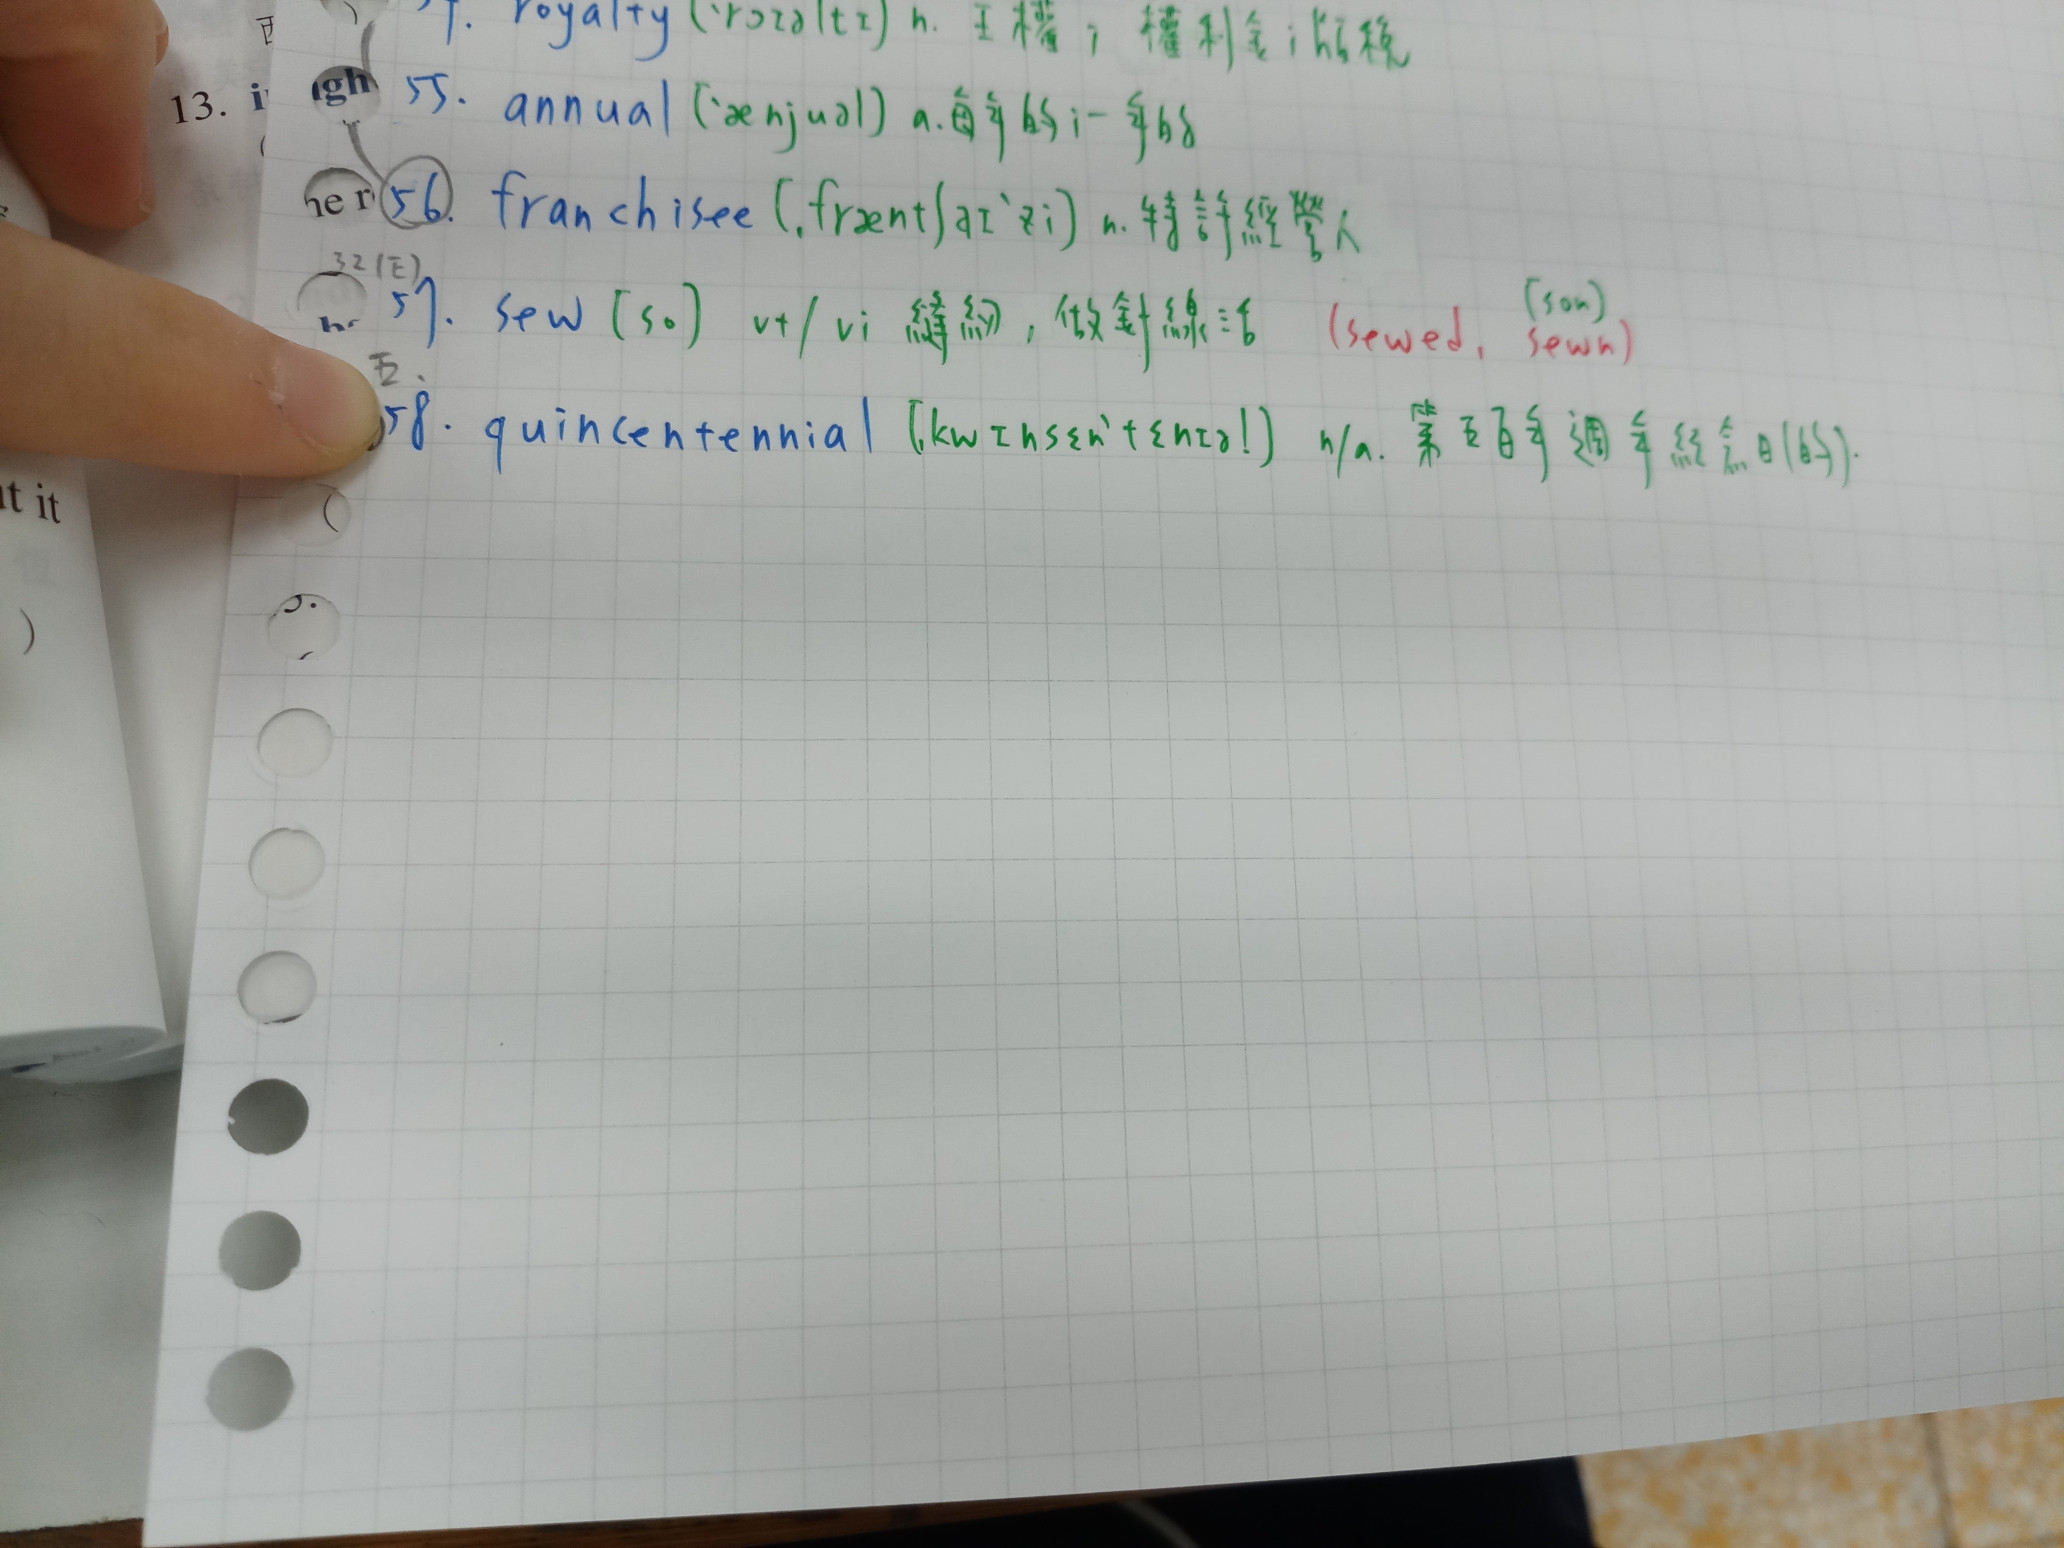 royalty (ˈrɔɪəltɪ) n. 王權; 權利金; 版稅
13.
igh
55. annual (ˈænjuəl) a. 每年的; 一年的
he r
56. franchisee (ˌfræntʃaɪˈzi) n. 特許經營人
32(E)
57. sew [so] vt/vi 縫紉, 做針線活 (sewed, sewn)
(son)
五.
58. quincentennial [ˌkwɪnsɛnˈtɛnɪəl] n/a. 第五百年週年紀念日(的).
t it
(
)